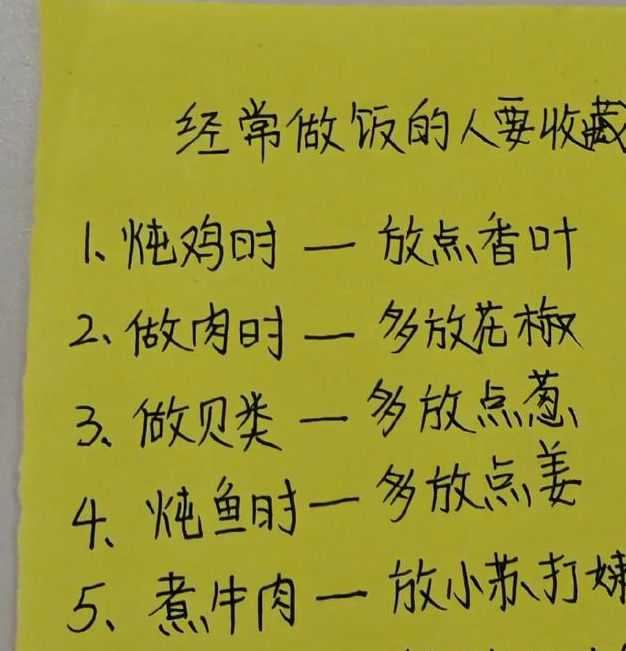 经常做饭的人要收藏
1、炖鸡时 — 放点香叶
2、做肉时 — 多放花椒
3、做贝类 — 多放点葱
4、炖鱼时 — 多放点姜
5、煮牛肉 — 放小苏打嫩